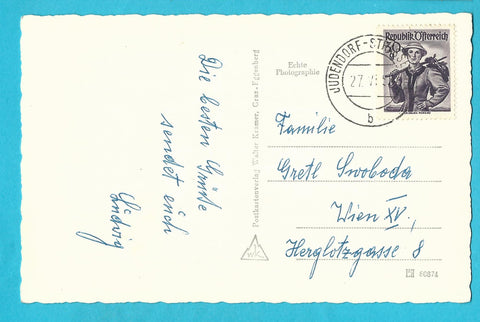 Die besten Grüße
sendet euch
Ludwig
Postkartenverlag Walter Kramer, Graz-Eggenberg
WK
Echte
Photographie
JUDENDORF-STR
27.
b
Republik Österreich
Familie
Gretl Swoboda
Wien XV,
Herglotzgasse 8
60874